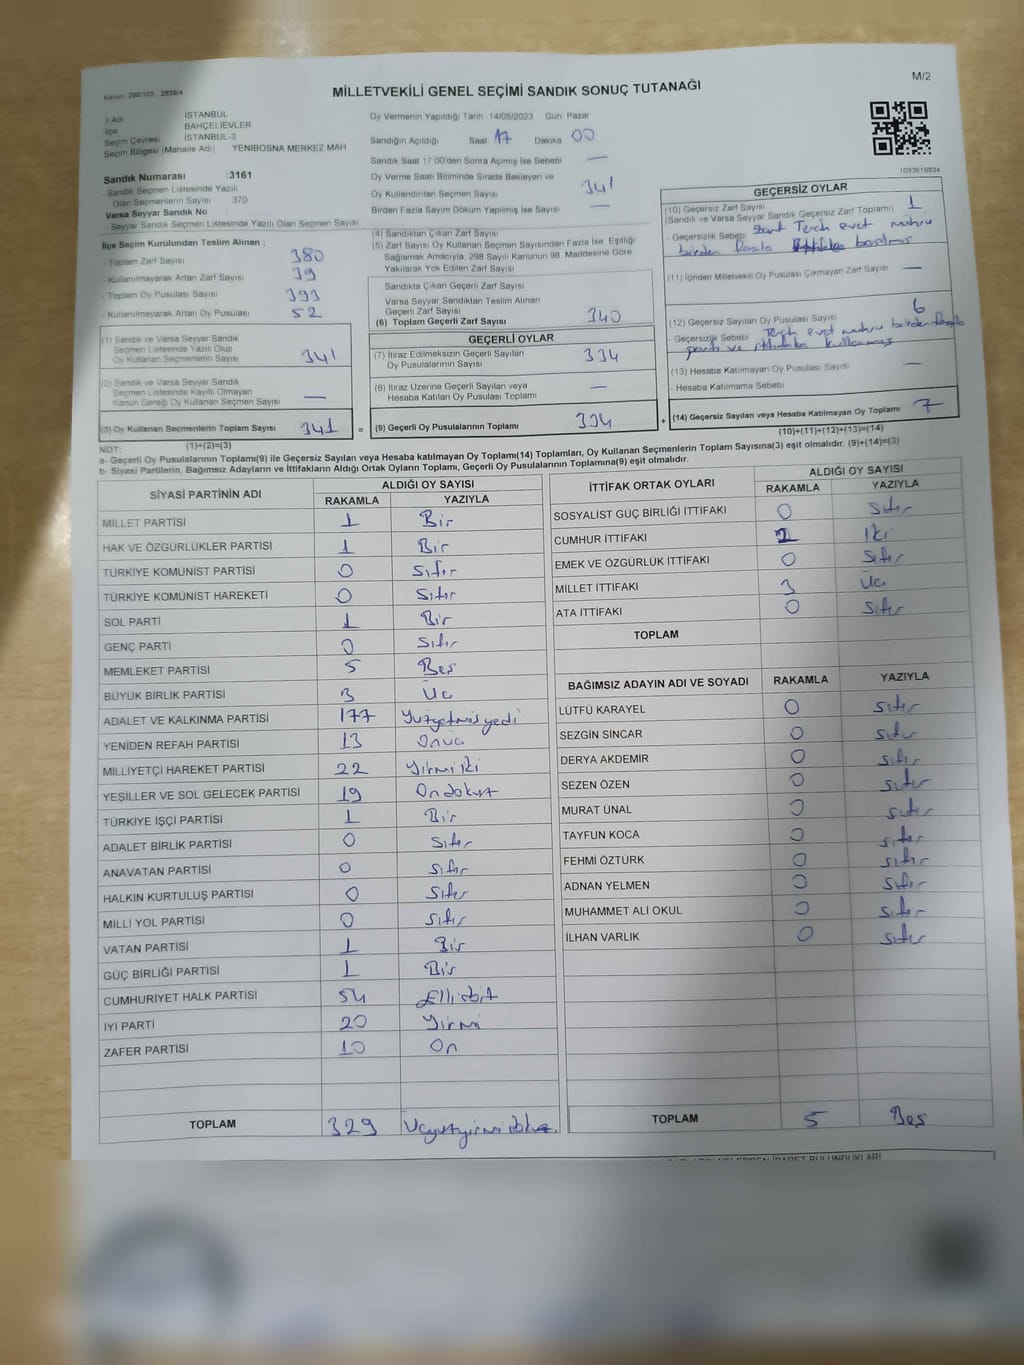 Kanun: 298/105 2839/4
MİLLETVEKİLİ GENEL SEÇİMİ SANDIK SONUÇ TUTANAĞI
M/2
İl Adı İSTANBUL
İlçe BAHÇELİEVLER
Seçim Çevresi İSTANBUL-3
Seçim Bölgesi (Mahalle Adı) YENİBOSNA MERKEZ MAH
Sandık Numarası :3161
- Sandık Seçmen Listesinde Yazılı
Olan Seçmenlerin Sayısı 370
Varsa Seyyar Sandık No :
- Seyyar Sandık Seçmen Listesinde Yazılı Olan Seçmen Sayısı
İlçe Seçim Kurulundan Teslim Alınan ;
- Toplam Zarf Sayısı 380
- Kullanılmayarak Artan Zarf Sayısı 39
- Toplam Oy Pusulası Sayısı 393
- Kullanılmayarak Artan Oy Pusulası 52
(1) Sandık ve Varsa Seyyar Sandık
Seçmen Listesinde Yazılı Olup
Oy Kullanan Seçmenlerin Sayısı 341
(2) Sandık ve Varsa Seyyar Sandık
Seçmen Listesinde Kayıtlı Olmayan
Kanun Gereği Oy Kullanan Seçmen Sayısı —
(3) Oy Kullanan Seçmenlerin Toplam Sayısı 341
(1)+(2)=(3)
Oy Vermenin Yapıldığı Tarih 14/05/2023 Gün Pazar
Sandığın Açıldığı Saat 17 Dakika 00
Sandık Saat 17 00'den Sonra Açılmış İse Sebebi —
Oy Verme Saati Bitiminde Sırada Bekleyen ve
Oy Kullandırılan Seçmen Sayısı 341
Birden Fazla Sayım Döküm Yapılmış İse Sayısı —
(4) Sandıktan Çıkan Zarf Sayısı
(5) Zarf Sayısı Oy Kullanan Seçmen Sayısından Fazla İse, Eşitliği
Sağlamak Amacıyla, 298 Sayılı Kanunun 98 Maddesine Göre
Yakılarak Yok Edilen Zarf Sayısı
Sandıkta Çıkan Geçerli Zarf Sayısı
Varsa Seyyar Sandıktan Teslim Alınan
Geçerli Zarf Sayısı
(6) Toplam Geçerli Zarf Sayısı 340
GEÇERLİ OYLAR
(7) İtiraz Edilmeksizin Geçerli Sayılan
Oy Pusulalarının Sayısı 334
(8) İtiraz Üzerine Geçerli Sayılan veya
Hesaba Katılan Oy Pusulası Toplamı —
= (9) Geçerli Oy Pusulalarının Toplamı 334
1093619834
GEÇERSİZ OYLAR
(10) Geçersiz Zarf Sayısı 1
(Sandık ve Varsa Seyyar Sandık Geçersiz Zarf Toplamı)
- Geçersizlik Sebebi Tercih evet mührü
birden fazla basılmış
(11) İçinden Milletvekili Oy Pusulası Çıkmayan Zarf Sayısı —
(12) Geçersiz Sayılan Oy Pusulası Sayısı 6
- Geçersizlik Sebebi Tercih evet mührü birden fazla
parti ve ittifaka kullanmış
(13) Hesaba Katılmayan Oy Pusulası Sayısı —
- Hesaba Katılmama Sebebi
+ (14) Geçersiz Sayılan veya Hesaba Katılmayan Oy Toplamı 7
(10)+(11)+(12)+(13)=(14)
NOT:
a- Geçerli Oy Pusulalarının Toplamı(9) ile Geçersiz Sayılan veya Hesaba Katılmayan Oy Toplamı(14) Toplamları, Oy Kullanan Seçmenlerin Toplam Sayısına(3) eşit olmalıdır. (9)+(14)=(3)
b- Siyasi Partilerin, Bağımsız Adayların ve İttifakların Aldığı Ortak Oyların Toplamı, Geçerli Oy Pusulalarının Toplamına(9) eşit olmalıdır.
SİYASİ PARTİNİN ADI ALDIĞI OY SAYISI
RAKAMLA YAZIYLA
MİLLET PARTİSİ 1 Bir
HAK VE ÖZGÜRLÜKLER PARTİSİ 1 Bir
TÜRKİYE KOMÜNİST PARTİSİ 0 Sıfır
TÜRKİYE KOMÜNİST HAREKETİ 0 Sıfır
SOL PARTİ 1 Bir
GENÇ PARTİ 0 Sıfır
MEMLEKET PARTİSİ 5 Beş
BÜYÜK BİRLİK PARTİSİ 3 Üç
ADALET VE KALKINMA PARTİSİ 177 Yüzyetmişyedi
YENİDEN REFAH PARTİSİ 13 Onüç
MİLLİYETÇİ HAREKET PARTİSİ 22 Yirmiiki
YEŞİLLER VE SOL GELECEK PARTİSİ 19 Ondokuz
TÜRKİYE İŞÇİ PARTİSİ 1 Bir
ADALET BİRLİK PARTİSİ 0 Sıfır
ANAVATAN PARTİSİ 0 Sıfır
HALKIN KURTULUŞ PARTİSİ 0 Sıfır
MİLLİ YOL PARTİSİ 0 Sıfır
VATAN PARTİSİ 1 Bir
GÜÇ BİRLİĞİ PARTİSİ 1 Bir
CUMHURİYET HALK PARTİSİ 54
İYİ PARTİ 20 Yirmi
ZAFER PARTİSİ 10 On
TOPLAM 329 Üçyüzyirmidokuz.
İTTİFAK ORTAK OYLARI ALDIĞI OY SAYISI
RAKAMLA YAZIYLA
SOSYALİST GÜÇ BİRLİĞİ İTTİFAKI 0 Sıfır
CUMHUR İTTİFAKI 2 İki
EMEK VE ÖZGÜRLÜK İTTİFAKI 0 Sıfır
MİLLET İTTİFAKI 3 Üç
ATA İTTİFAKI 0 Sıfır
TOPLAM
BAĞIMSIZ ADAYIN ADI VE SOYADI RAKAMLA YAZIYLA
LÜTFÜ KARAYEL 0 Sıfır
SEZGİN SİNCAR 0 Sıfır
DERYA AKDEMİR 0 Sıfır
SEZEN ÖZEN 0 Sıfır
MURAT ÜNAL 0 Sıfır
TAYFUN KOCA 0 Sıfır
FEHMİ ÖZTÜRK 0 Sıfır
ADNAN YELMEN 0 Sıfır
MUHAMMET ALİ OKUL 0 Sıfır
İLHAN VARLIK 0 Sıfır
TOPLAM 5 Beş